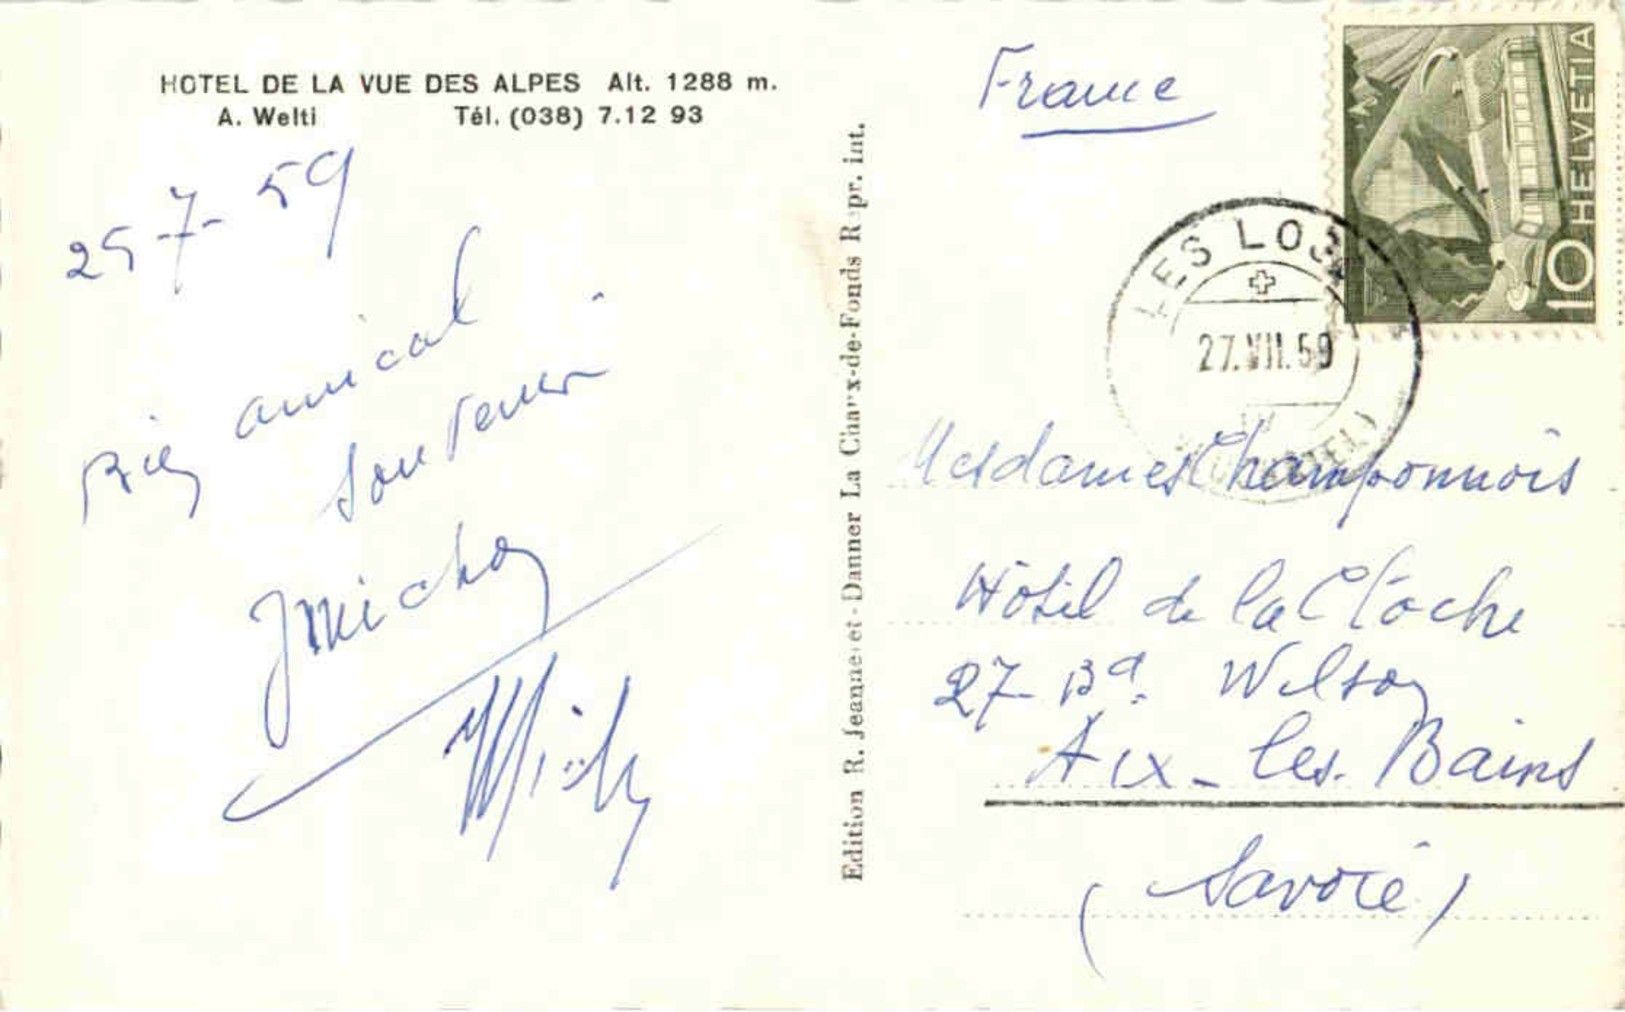 HOTEL DE LA VUE DES ALPES Alt. 1288 m.
A. Welti Tél. (038) 7.12 93
25-7-59
Bien amical
souvenir
JMichon
Edition R. Jeanneret - Danner La Chaux-de-Fonds Repr. int.
France
HELVETIA
10
LES LO
27.VII.59
Mesdames Champonnois
Hôtel de la Cloche
27 Bd. Wilson
Aix-les-Bains
(Savoie)